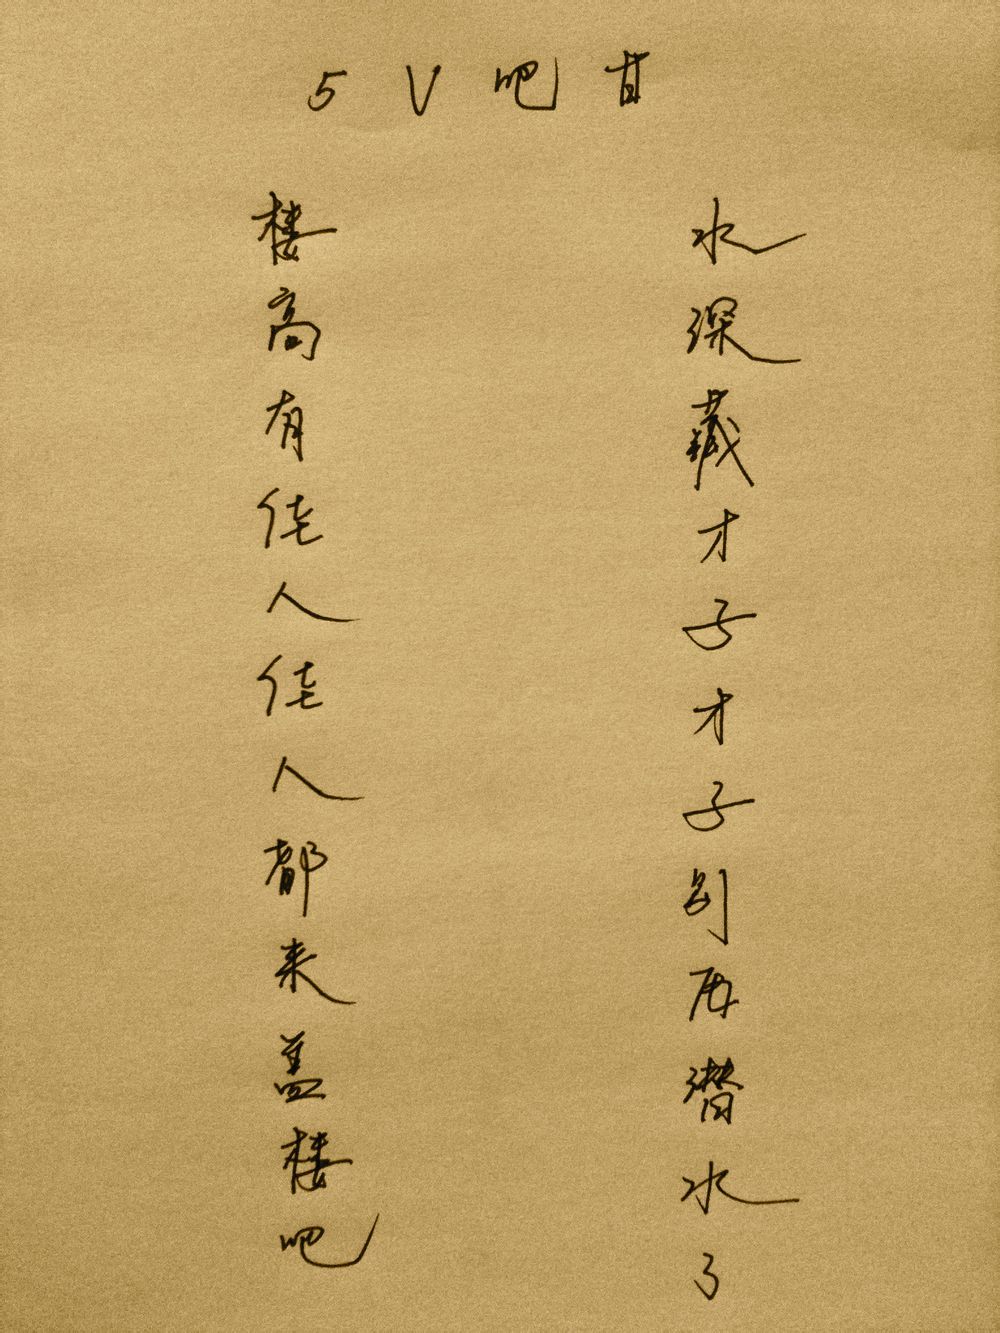 昔吧V5
水深藏才子才子别再潜水了
楼高有佳人佳人都来盖楼吧